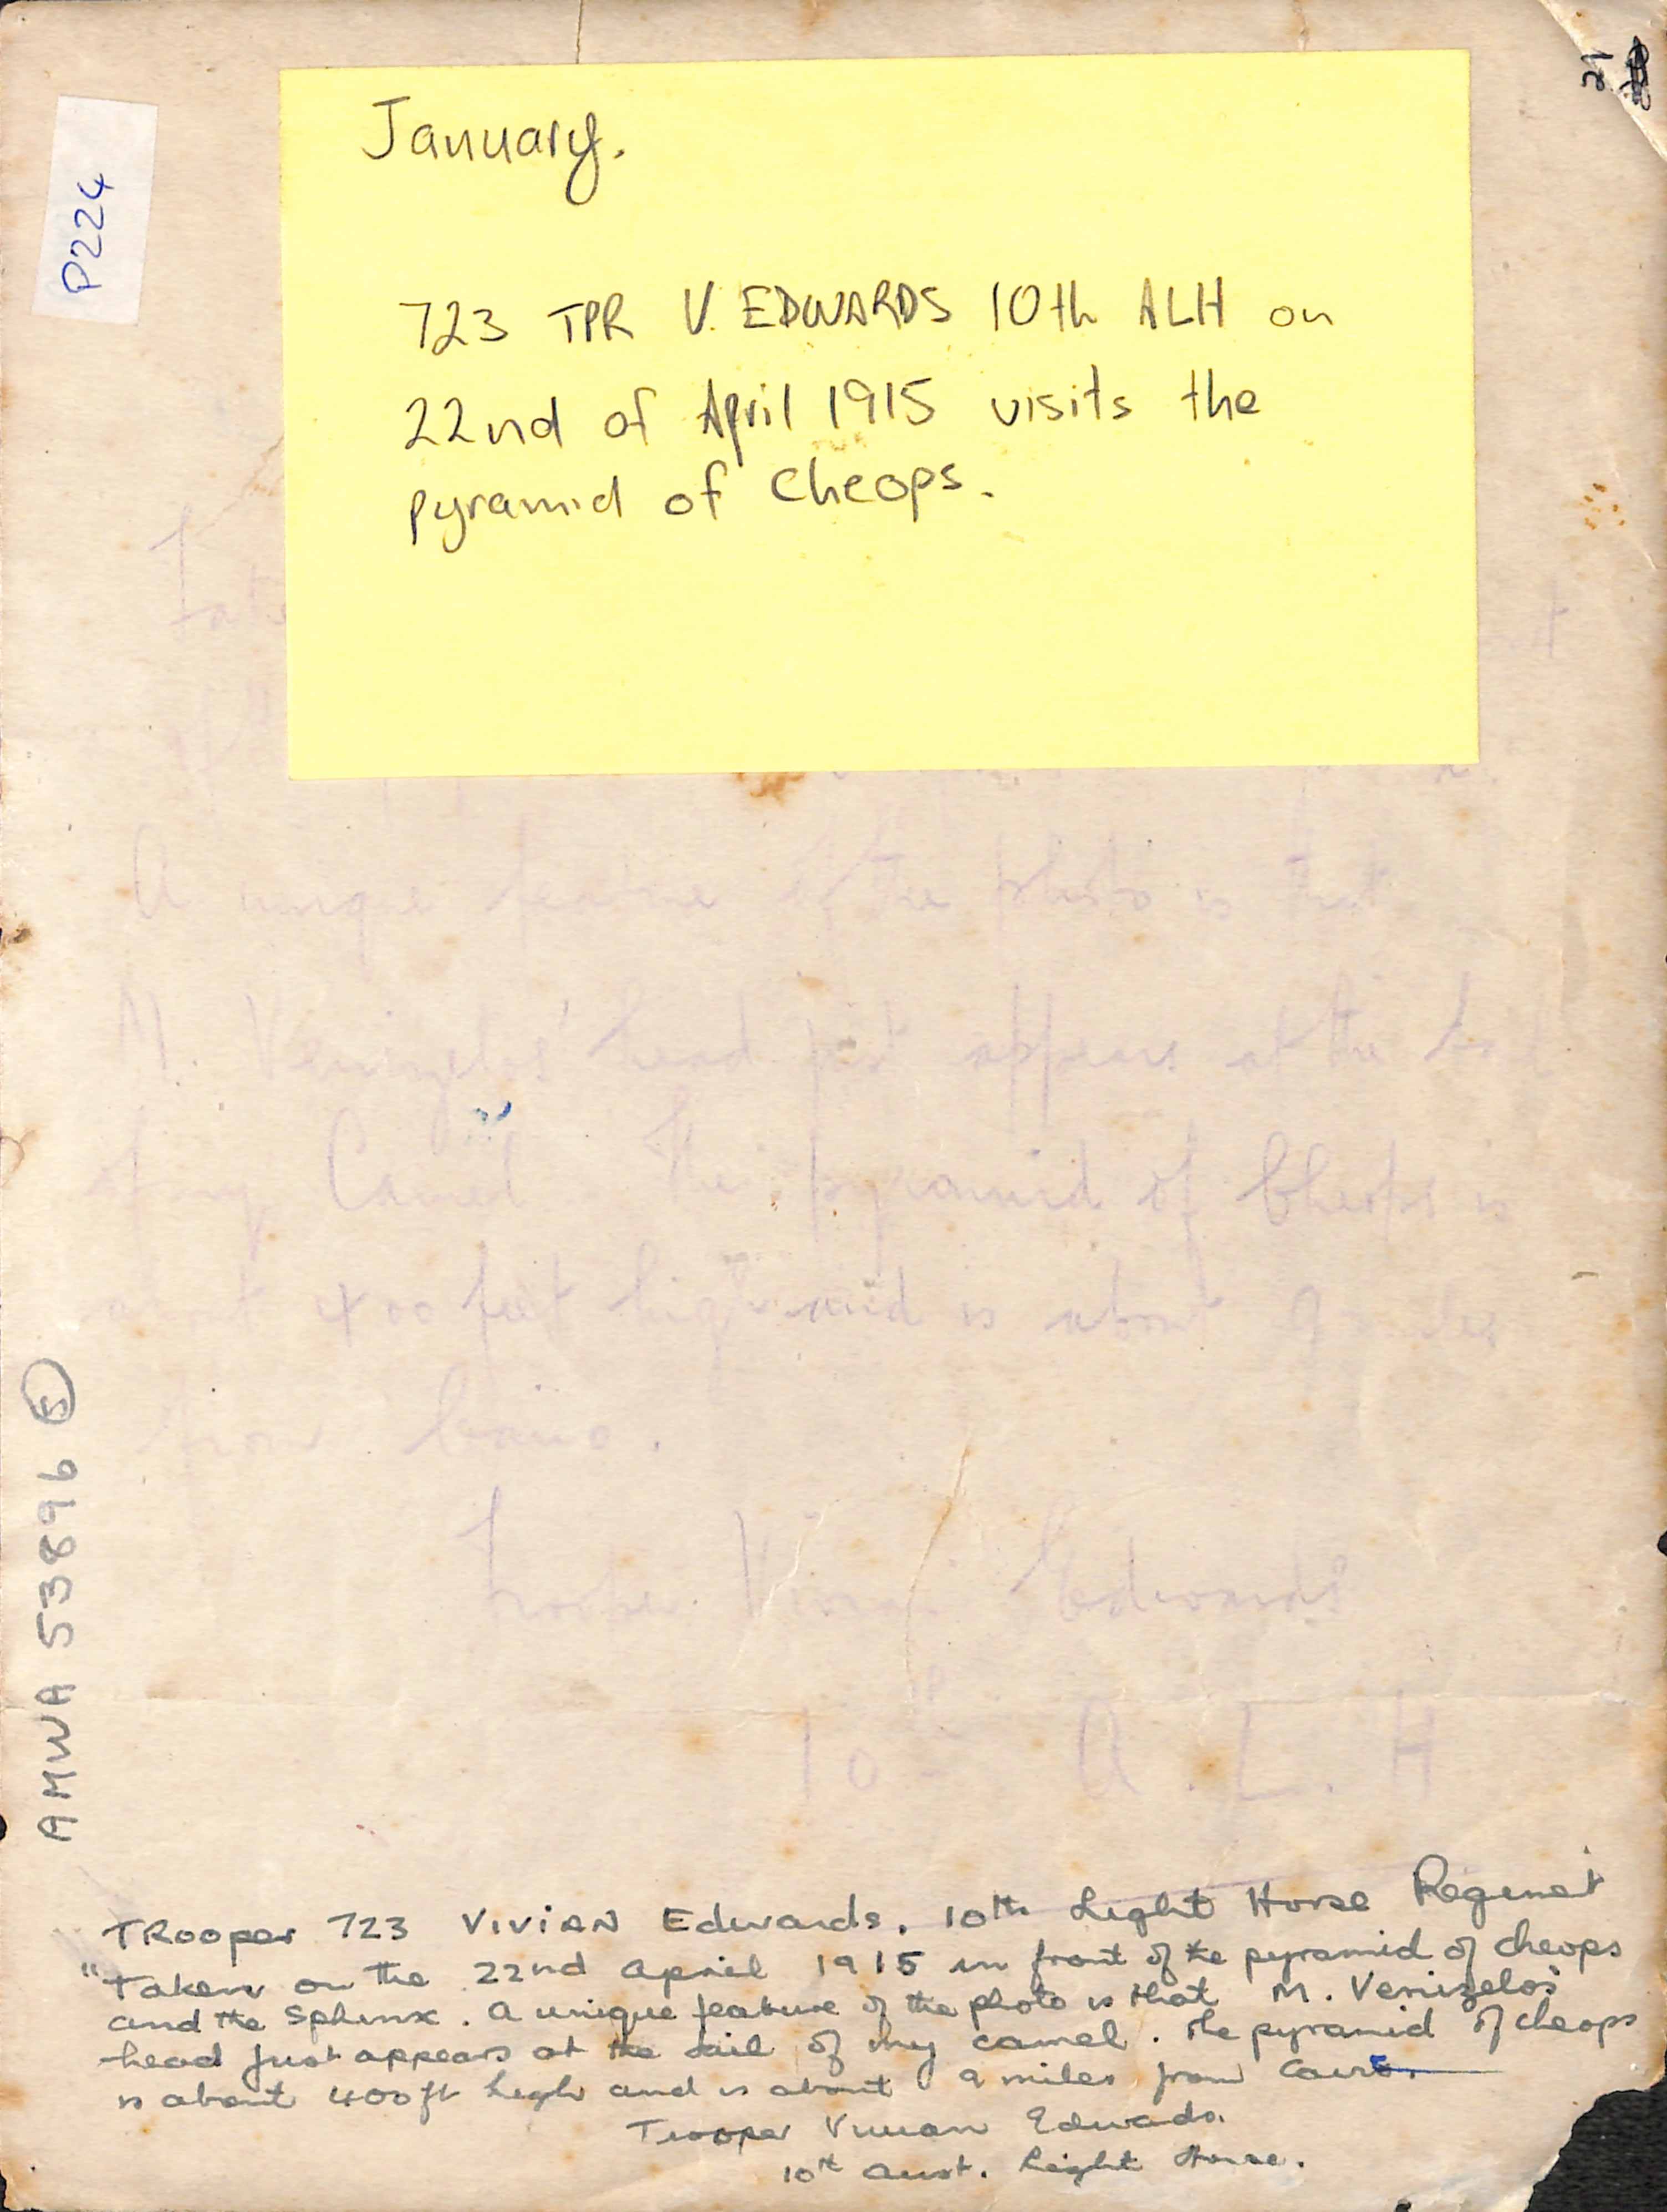 21
P224
January.
723 TPR V. EDWARDS 10th ALH on
22nd of April 1915 visits the
pyramid of Cheops.
A unique feature of the photo is that
M. Venizelos' head just appears at the tail
of my Camel. The pyramid of Cheops is
about 400 feet high and is about 9
from Cairo.
Trooper Vivian Edwards
10th A. L. H
AMWA 53896
TRooper 723 VIVIAN Edwards. 10th Light Horse Regimet
"Taken on the 22nd april 1915 in front of the pyramid of cheops
and the Sphinx. a unique feature of the photo is that M. Venizelos'
head just appears at the tail of my camel. The pyramid of cheops
is about 400ft high and is about 9 miles from Cairo.
Trooper Vivian Edwards.
10th Aust. Light Horse.